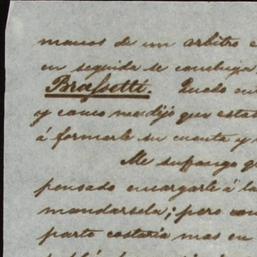 manos de un arbitro
en seguida se concluya
Brassetti. Quedo en
y como me dijo que esta
á formarle su cuenta y
Me supongo q
pensado encargarle á la
mandarsela; pero con
parto costaria mas en